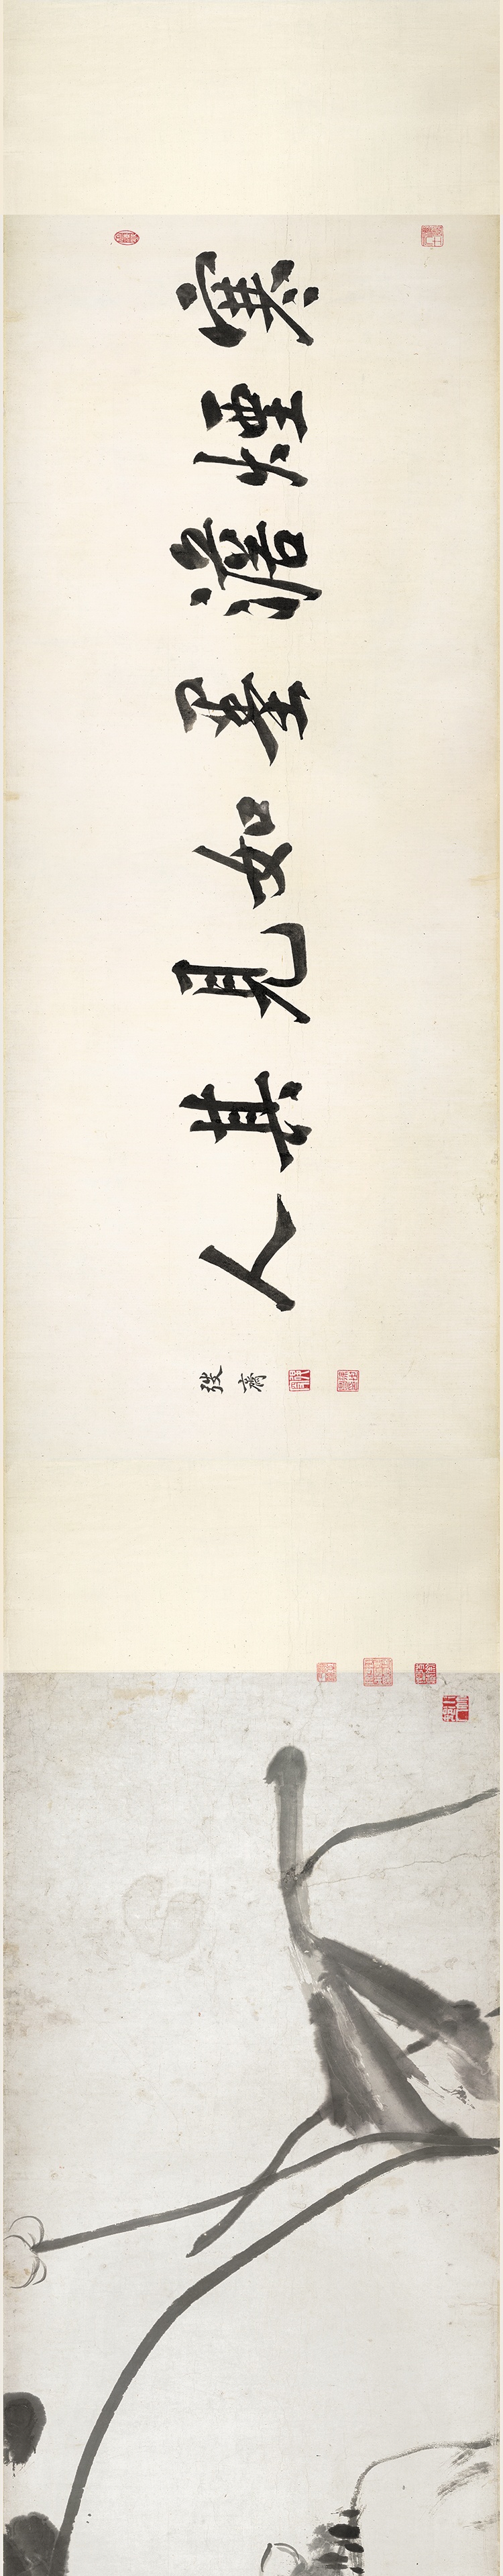 寒煙澹墨如見其人
弢齋